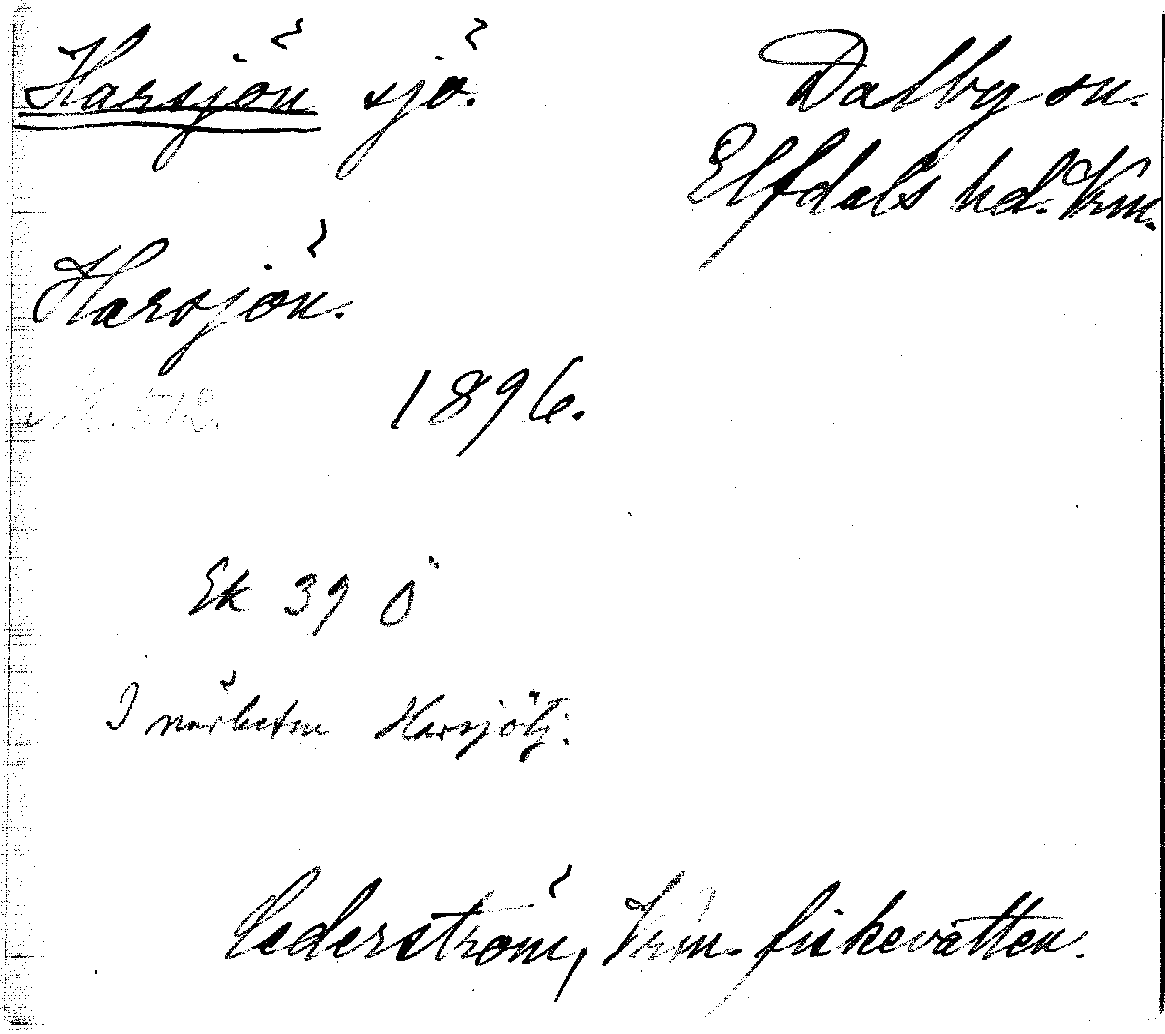 Harsjön sjö. Dalby sn.
Elfdals hd. Vrm.
Harsjön.
1896.
Ek 39 Ö
I närheten Harsjötj:
Cederström, Vrm. fiskevatten.